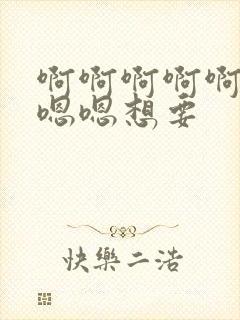 啊啊啊啊啊
嗯嗯想要
快樂二浩